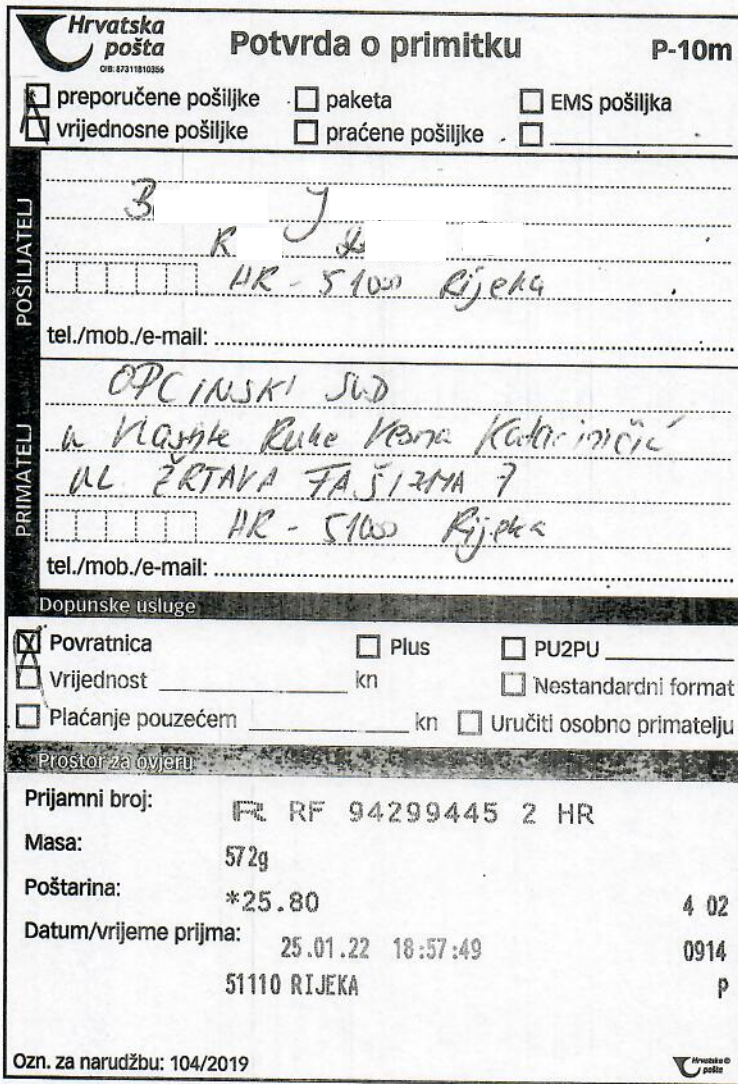 Hrvatska pošta
OIB: 87311810356
Potvrda o primitku
P-10m
preporučene pošiljke paketa EMS pošiljka
vrijednosne pošiljke praćene pošiljke
POŠILJATELJ
B J
R
HR - 51000 Rijeka
tel./mob./e-mail:
PRIMATELJ
OPĆINSKI SUD
u Vlastite Ruke Vesna Katarinčić
UL. ŽRTAVA FAŠIZMA 7
HR - 51000 Rijeka
tel./mob./e-mail:
Dopunske usluge
Povratnica Plus PU2PU
Vrijednost kn Nestandardni format
Plaćanje pouzećem kn Uručiti osobno primatelju
Prostor za ovjeru
Prijamni broj: R RF 94299445 2 HR
Masa: 572g
Poštarina: *25.80 4 02
Datum/vrijeme prijma: 25.01.22 18:57:49 0914
51110 RIJEKA p
Ozn. za narudžbu: 104/2019
Hrvatska pošta